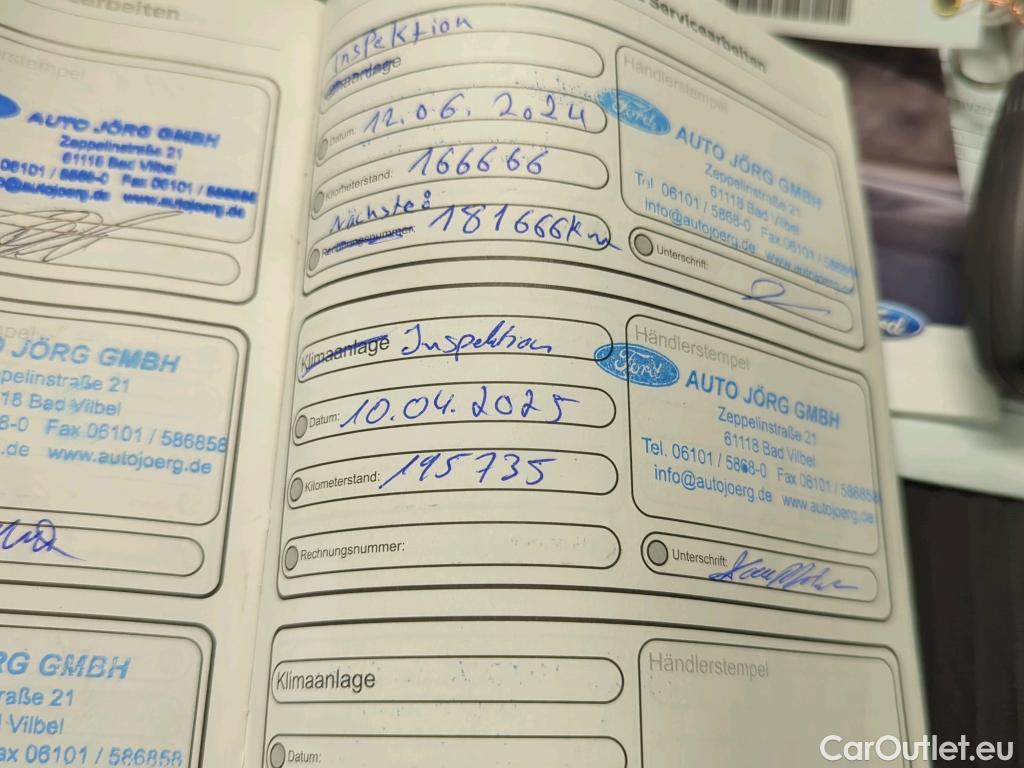 earbeiten
AUTO JÖRG GMBH
Zeppelinstraße 21
61118 Bad Vilbel
06101 / 5868-0 Fax 06101 / 586858
@autojoerg.de www.autojoerg.de
JÖRG GMBH
ppelinstraße 21
118 Bad Vilbel
8-0 Fax 06101 / 586858
.de www.autojoerg.de
RG GMBH
raße 21
Vilbel
ax 06101 / 586858
Servicearbeiten
Inspektion
Datum: 12.06.2024
Kilometerstand: 166666
Nächste
Rechnungsnummer: 181666km
Händlerstempel
Ford
AUTO JÖRG GMBH
Zeppelinstraße 21
61118 Bad Vilbel
Tel. 06101 / 5868-0 Fax 06101 / 586858
info@autojoerg.de www.autojoerg.de
Unterschrift:
Klimaanlage Inspektion
Datum: 10.04.2025
Kilometerstand: 195735
Rechnungsnummer:
Händlerstempel
Ford
AUTO JÖRG GMBH
Zeppelinstraße 21
61118 Bad Vilbel
Tel. 06101 / 5868-0 Fax 06101 / 586858
info@autojoerg.de www.autojoerg.de
Unterschrift:
Klimaanlage
Datum:
Händlerstempel
CarOutlet.eu